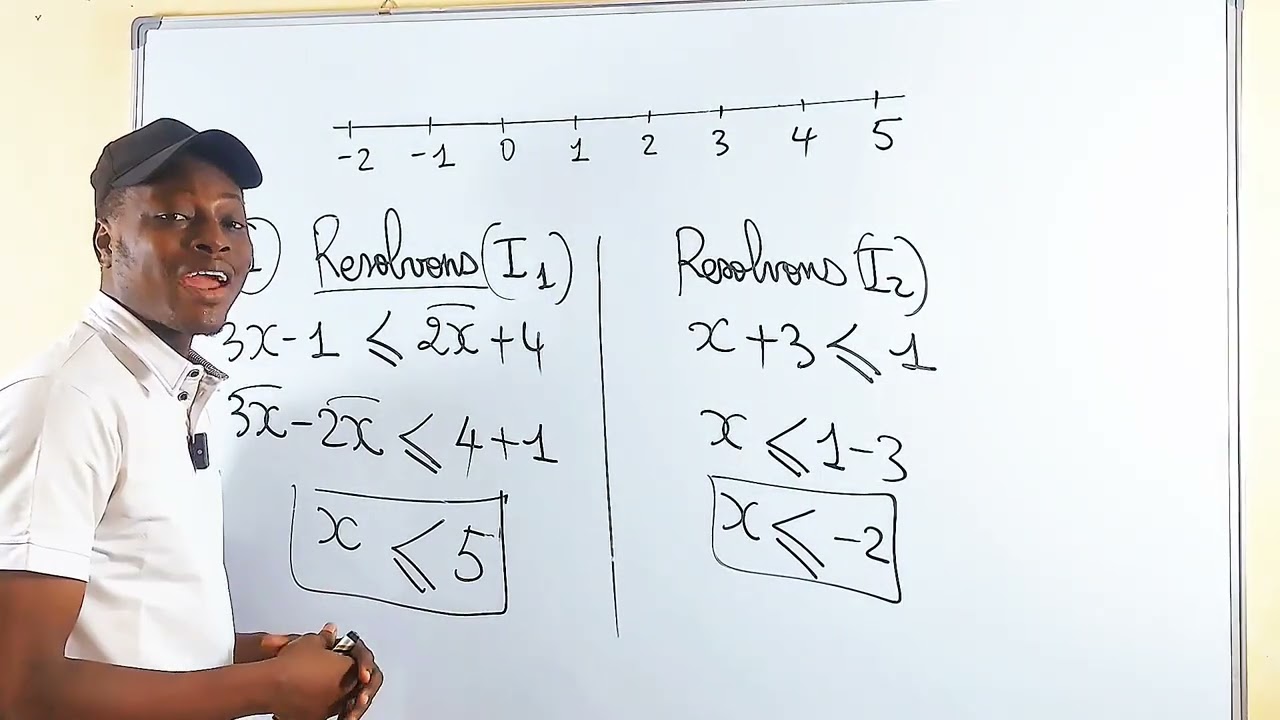 -2 -1 0 1 2 3 4 5
1) Resolvons (I₁)
3x-1 ⩽ 2x+4
3x-2x ⩽ 4+1
x ⩽ 5
Resolvons (I₂)
x+3 ⩽ 1
x ⩽ 1-3
x ⩽ -2